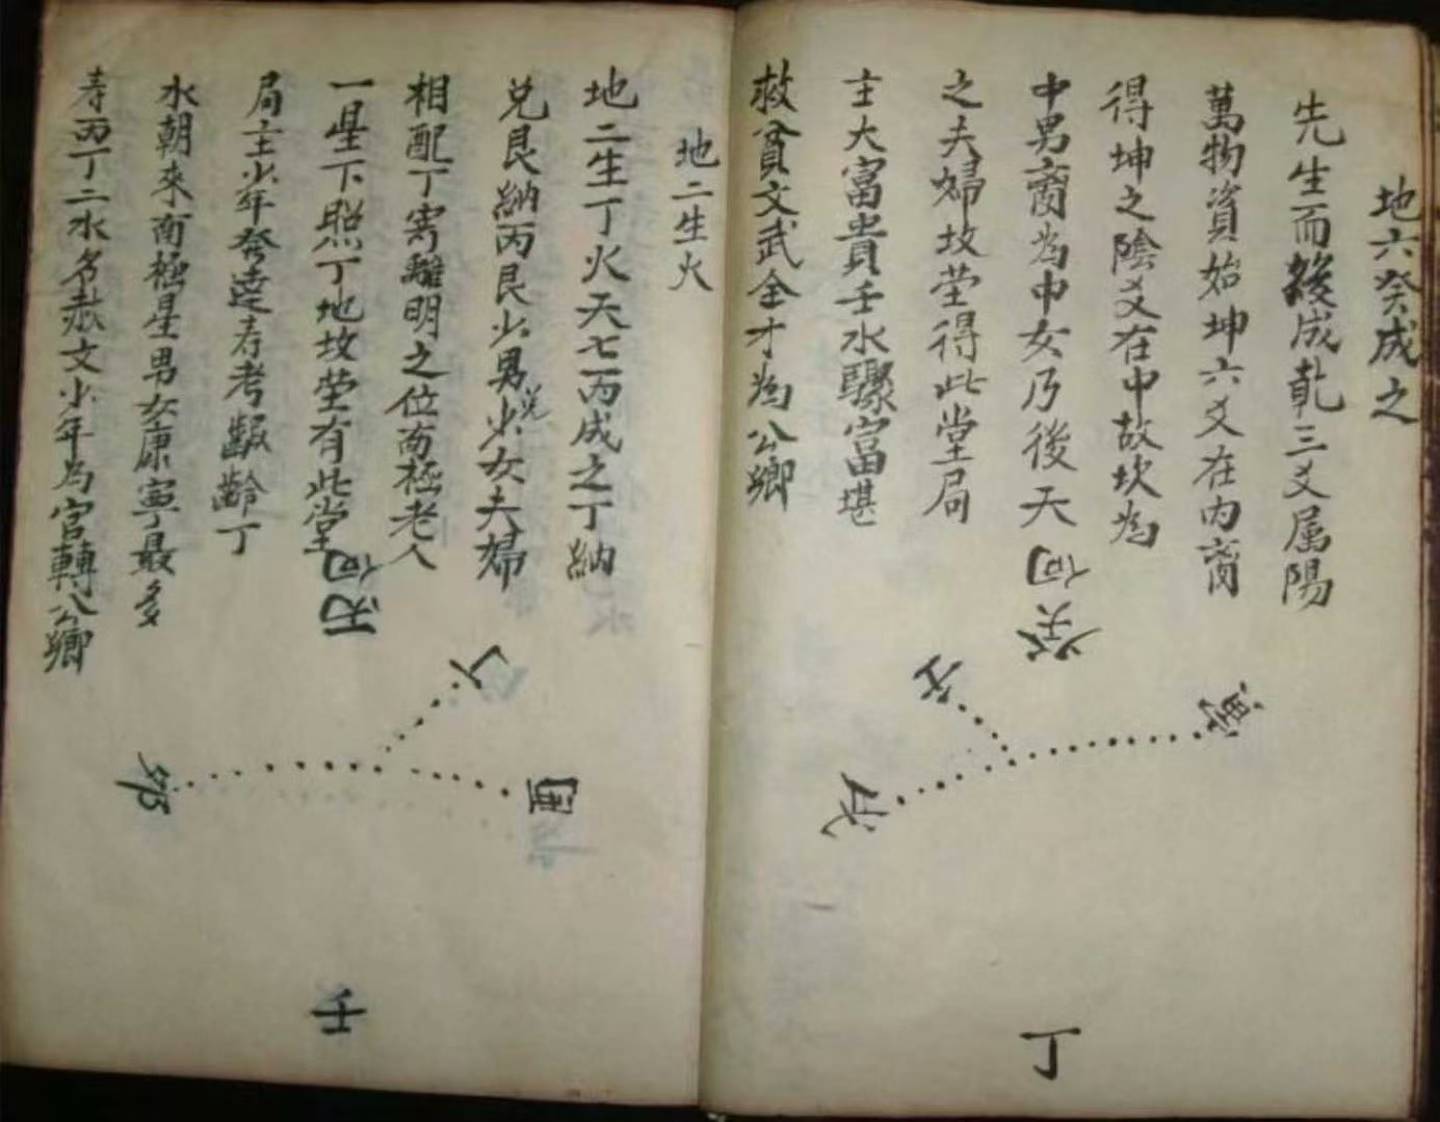 地六癸成之
先生而後成乾三爻属陽
萬物資始坤六爻在内啇
得坤之陰爻在中故坎為
中男啇為中女乃後天
之夫婦坟茔得此堂局
主大富貴壬水驟富堪
救貧文武全才為公卿
向
癸
丁
地二生火
地二生丁火天七丙成之丁納
兑艮納丙艮少男兑少女夫婦
相配丁寄離明之位南極老人
一星下照丁地坟茔有此堂
局主少年發達寿考齯齡丁
水朝來南極星男女康寧最多
寿丙丁二水名赦文少年為官轉公卿
向
丙
丁
卯
壬